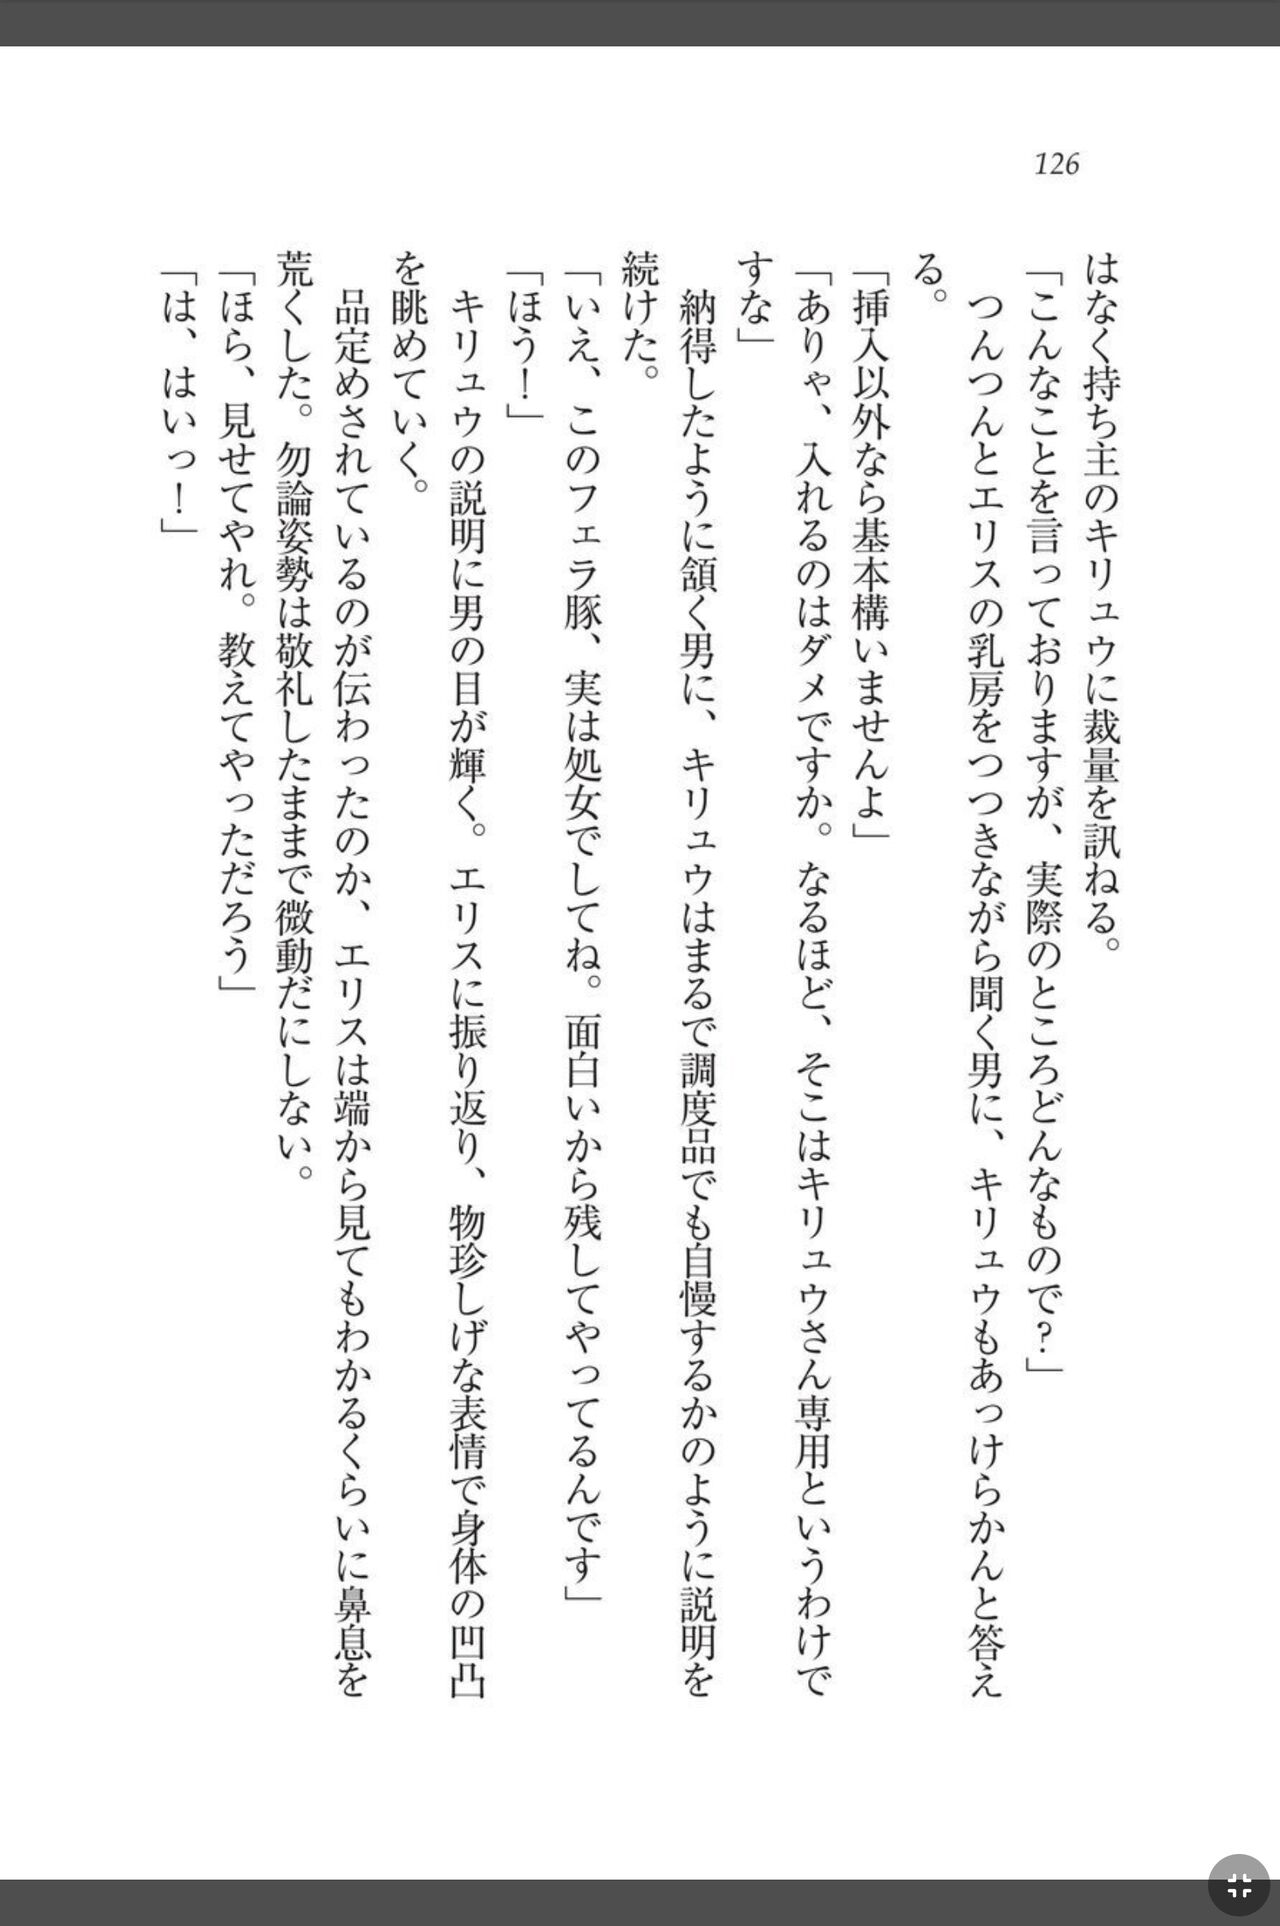 126
はなく持ち主のキリュウに裁量を訊ねる。
「こんなことを言っておりますが、実際のところどんなもので？」
つんつんとエリスの乳房をつつきながら聞く男に、キリュウもあっけらかんと答え
る。
「挿入以外なら基本構いませんよ」
「ありゃ、入れるのはダメですか。なるほど、そこはキリュウさん専用というわけで
すな」
納得したように頷く男に、キリュウはまるで調度品でも自慢するかのように説明を
続けた。
「いえ、このフェラ豚、実は処女でしてね。面白いから残してやってるんです」
「ほう！」
キリュウの説明に男の目が輝く。エリスに振り返り、物珍しげな表情で身体の凹凸
を眺めていく。
品定めされているのが伝わったのか、エリスは端から見てもわかるくらいに鼻息を
荒くした。勿論姿勢は敬礼したままで微動だにしない。
「ほら、見せてやれ。教えてやっただろう」
「は、はいっ！」